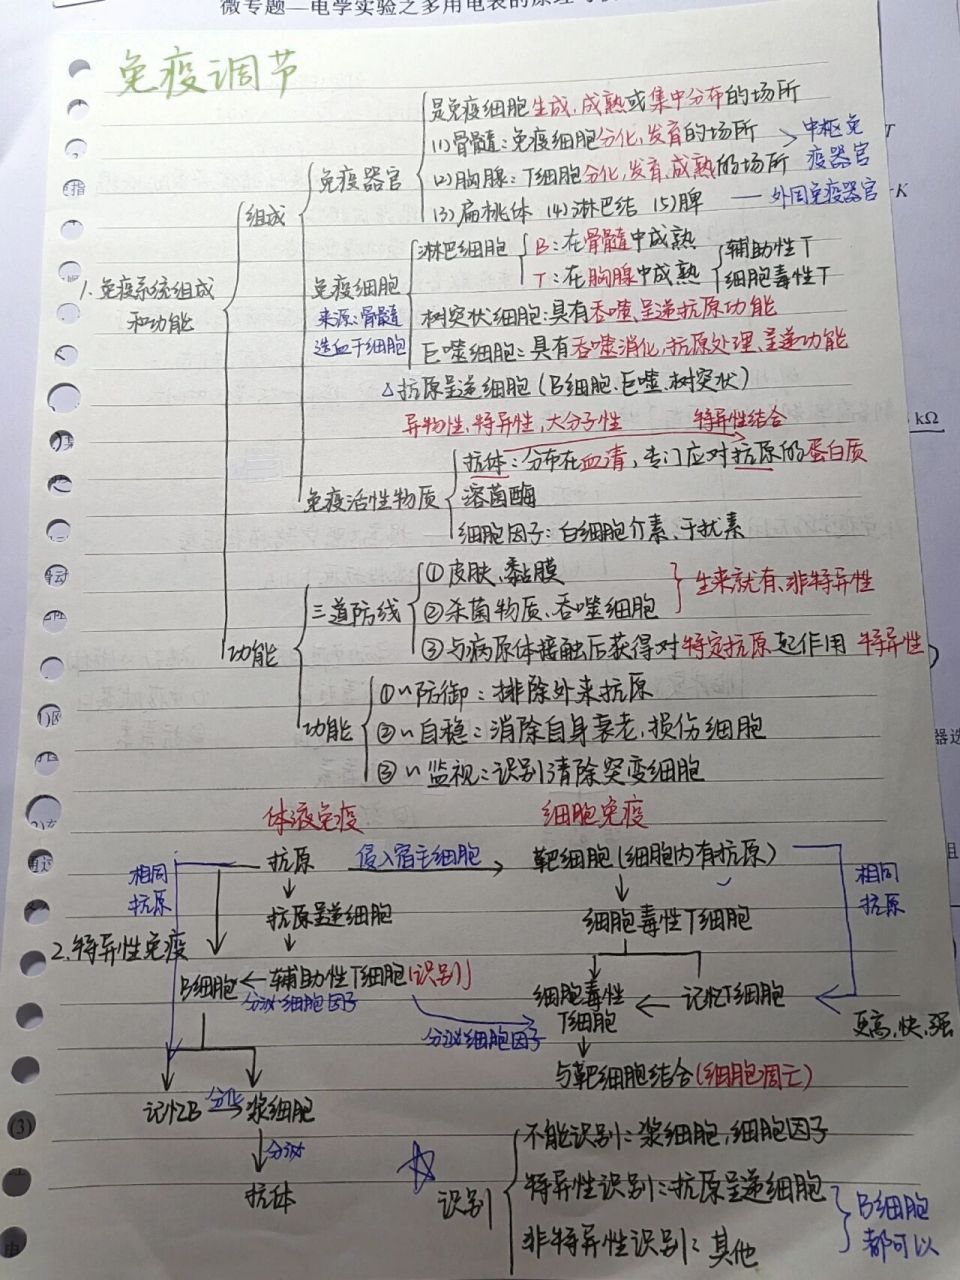 微专题—电学实验之多用电表的原理
免疫调节
是免疫细胞生成,成熟或集中分布的场所
(1)骨髓:免疫细胞分化,发育的场所
中枢免
疫器官
免疫器官
(2)胸腺:T细胞分化,发育,成熟的场所
组成
(3)扁桃体 (4)淋巴结 (5)脾 — 外周免疫器官
淋巴细胞
B:在骨髓中成熟
T:在胸腺中成熟
辅助性T
细胞毒性T
1.免疫系统组成
和功能
免疫细胞
来源:骨髓
造血干细胞
树突状细胞:具有吞噬,呈递抗原功能
巨噬细胞:具有吞噬消化,抗原处理,呈递功能
△抗原呈递细胞(B细胞、巨噬、树突状)
异物性、特异性,大分子性 特异性结合
抗体:分布在血清,专门应对抗原的蛋白质
免疫活性物质
溶菌酶
细胞因子:白细胞介素、干扰素
三道防线
①皮肤、黏膜
②杀菌物质、吞噬细胞
生来就有、非特异性
③与病原体接触后获得对特定抗原起作用 特异性
功能
功能
①~防御:排除外来抗原
②~自稳:消除自身衰老,损伤细胞
③~监视:识别清除突变细胞
体液免疫 细胞免疫
抗原 侵入宿主细胞 靶细胞(细胞内有抗原)
相同
抗原
相同
抗原
抗原呈递细胞 细胞毒性T细胞
2.特异性免疫
B细胞 辅助性T细胞(识别)
分泌细胞因子
分泌细胞因子
细胞毒性
T细胞
记忆T细胞
更高,快,强
与靶细胞结合(细胞凋亡)
记忆B 分化 浆细胞
分泌
抗体
识别
不能识别:浆细胞,细胞因子
特异性识别:抗原呈递细胞
非特异性识别:其他
B细胞
都可以
kΩ
K
(3)